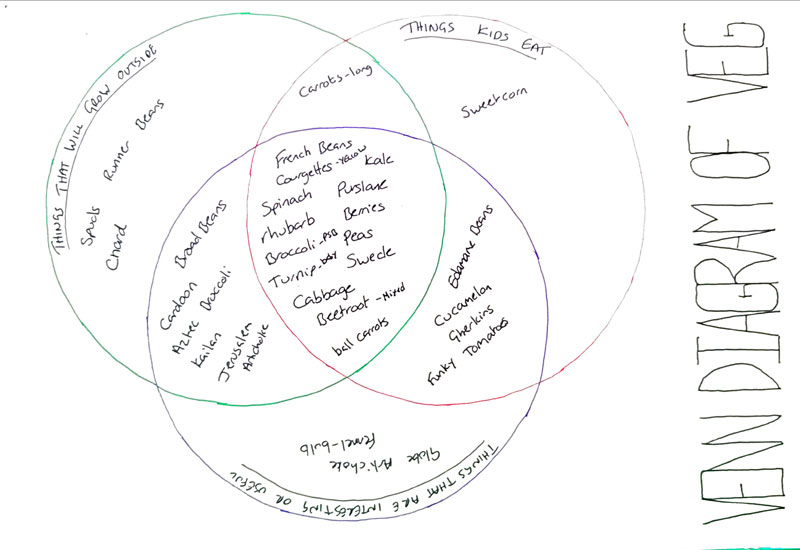 VENN DIAGRAM OF VEG
THINGS THAT WILL GROW OUTSIDE
Spuds
Chard
Runner Beans
THINGS KIDS EAT
Sweetcorn
Carrots-long
French Beans
Courgettes-YELLOW
Kale
Spinach
Purslane
rhubarb
Berries
Broccoli-PSB
Peas
Turnip-baby
Swede
Cabbage
Beetroot-Mixed
ball carrots
Broad Beans
Cardoon
Aztec Broccoli
Kailan
Jerusalem
Artichoke
Edamame Beans
Cucamelon
Gherkins
Funky Tomatoes
Globe Artichoke
Fennel-bulb
THINGS THAT ARE INTERESTING OR USEFUL